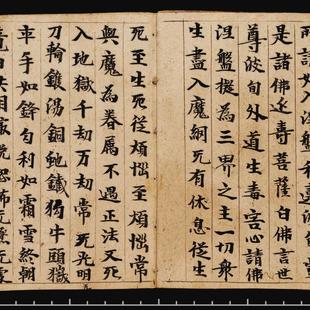 是諸佛逐壽菩薩白佛言世
尊波旬外道生毒害心請佛
涅盤擬為三界之主一切衆
生盡入魔網无有休息從生
死至生死從煩惱至煩惱常
與魔為眷屬不遇正法又死
入地獄千劫万劫常无光明
刀輪鑊湯銅蛇鐵狗牛頭獄
車手如鋒勾利如霜雪終朝